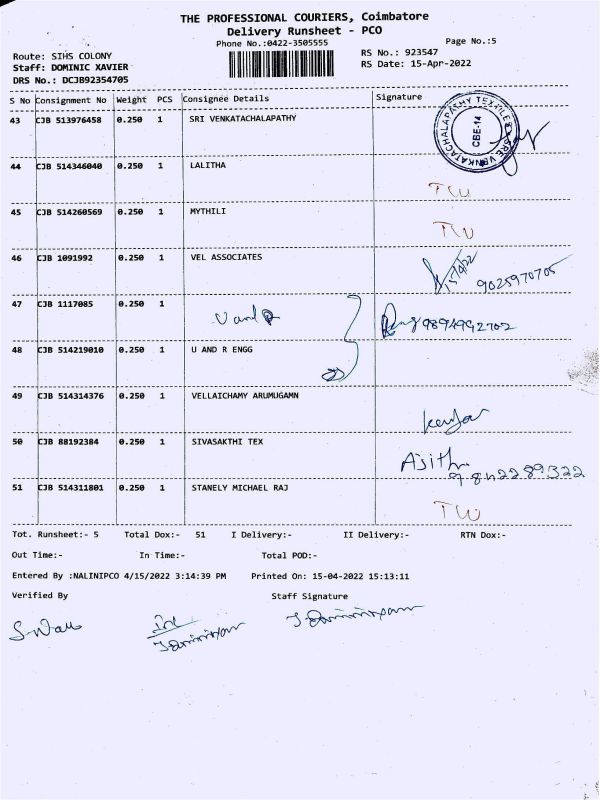 THE PROFESSIONAL COURIERS, Coimbatore
Delivery Runsheet - PCO
Phone No.:0422-3505555
Page No.:5
Route: SIHS COLONY
RS No.: 923547
Staff: DOMINIC XAVIER
RS Date: 15-Apr-2022
DRS No.: DCJB92354705
S No Consignment No Weight PCS Consignee Details Signature
43 CJB 513976458 0.250 1 SRI VENKATACHALAPATHY
SRI VENKATACHALAPATHY TEXTILES CBE-14
44 CJB 514346040 0.250 1 LALITHA
TW
45 CJB 514260569 0.250 1 MYTHILI
TW
46 CJB 1091992 0.250 1 VEL ASSOCIATES
9025970705
47 CJB 1117085 0.250 1 U and R
9894992702
48 CJB 514219010 0.250 1 U AND R ENGG
49 CJB 514314376 0.250 1 VELLAICHAMY ARUMUGAMN
50 CJB 88192384 0.250 1 SIVASAKTHI TEX
Ajith
9842289322
51 CJB 514311801 0.250 1 STANELY MICHAEL RAJ
TW
Tot. Runsheet:- 5 Total Dox:- 51 I Delivery:- II Delivery:- RTN Dox:-
Out Time:- In Time:- Total POD:-
Entered By :NALINIPCO 4/15/2022 3:14:39 PM Printed On: 15-04-2022 15:13:11
Verified By Staff Signature